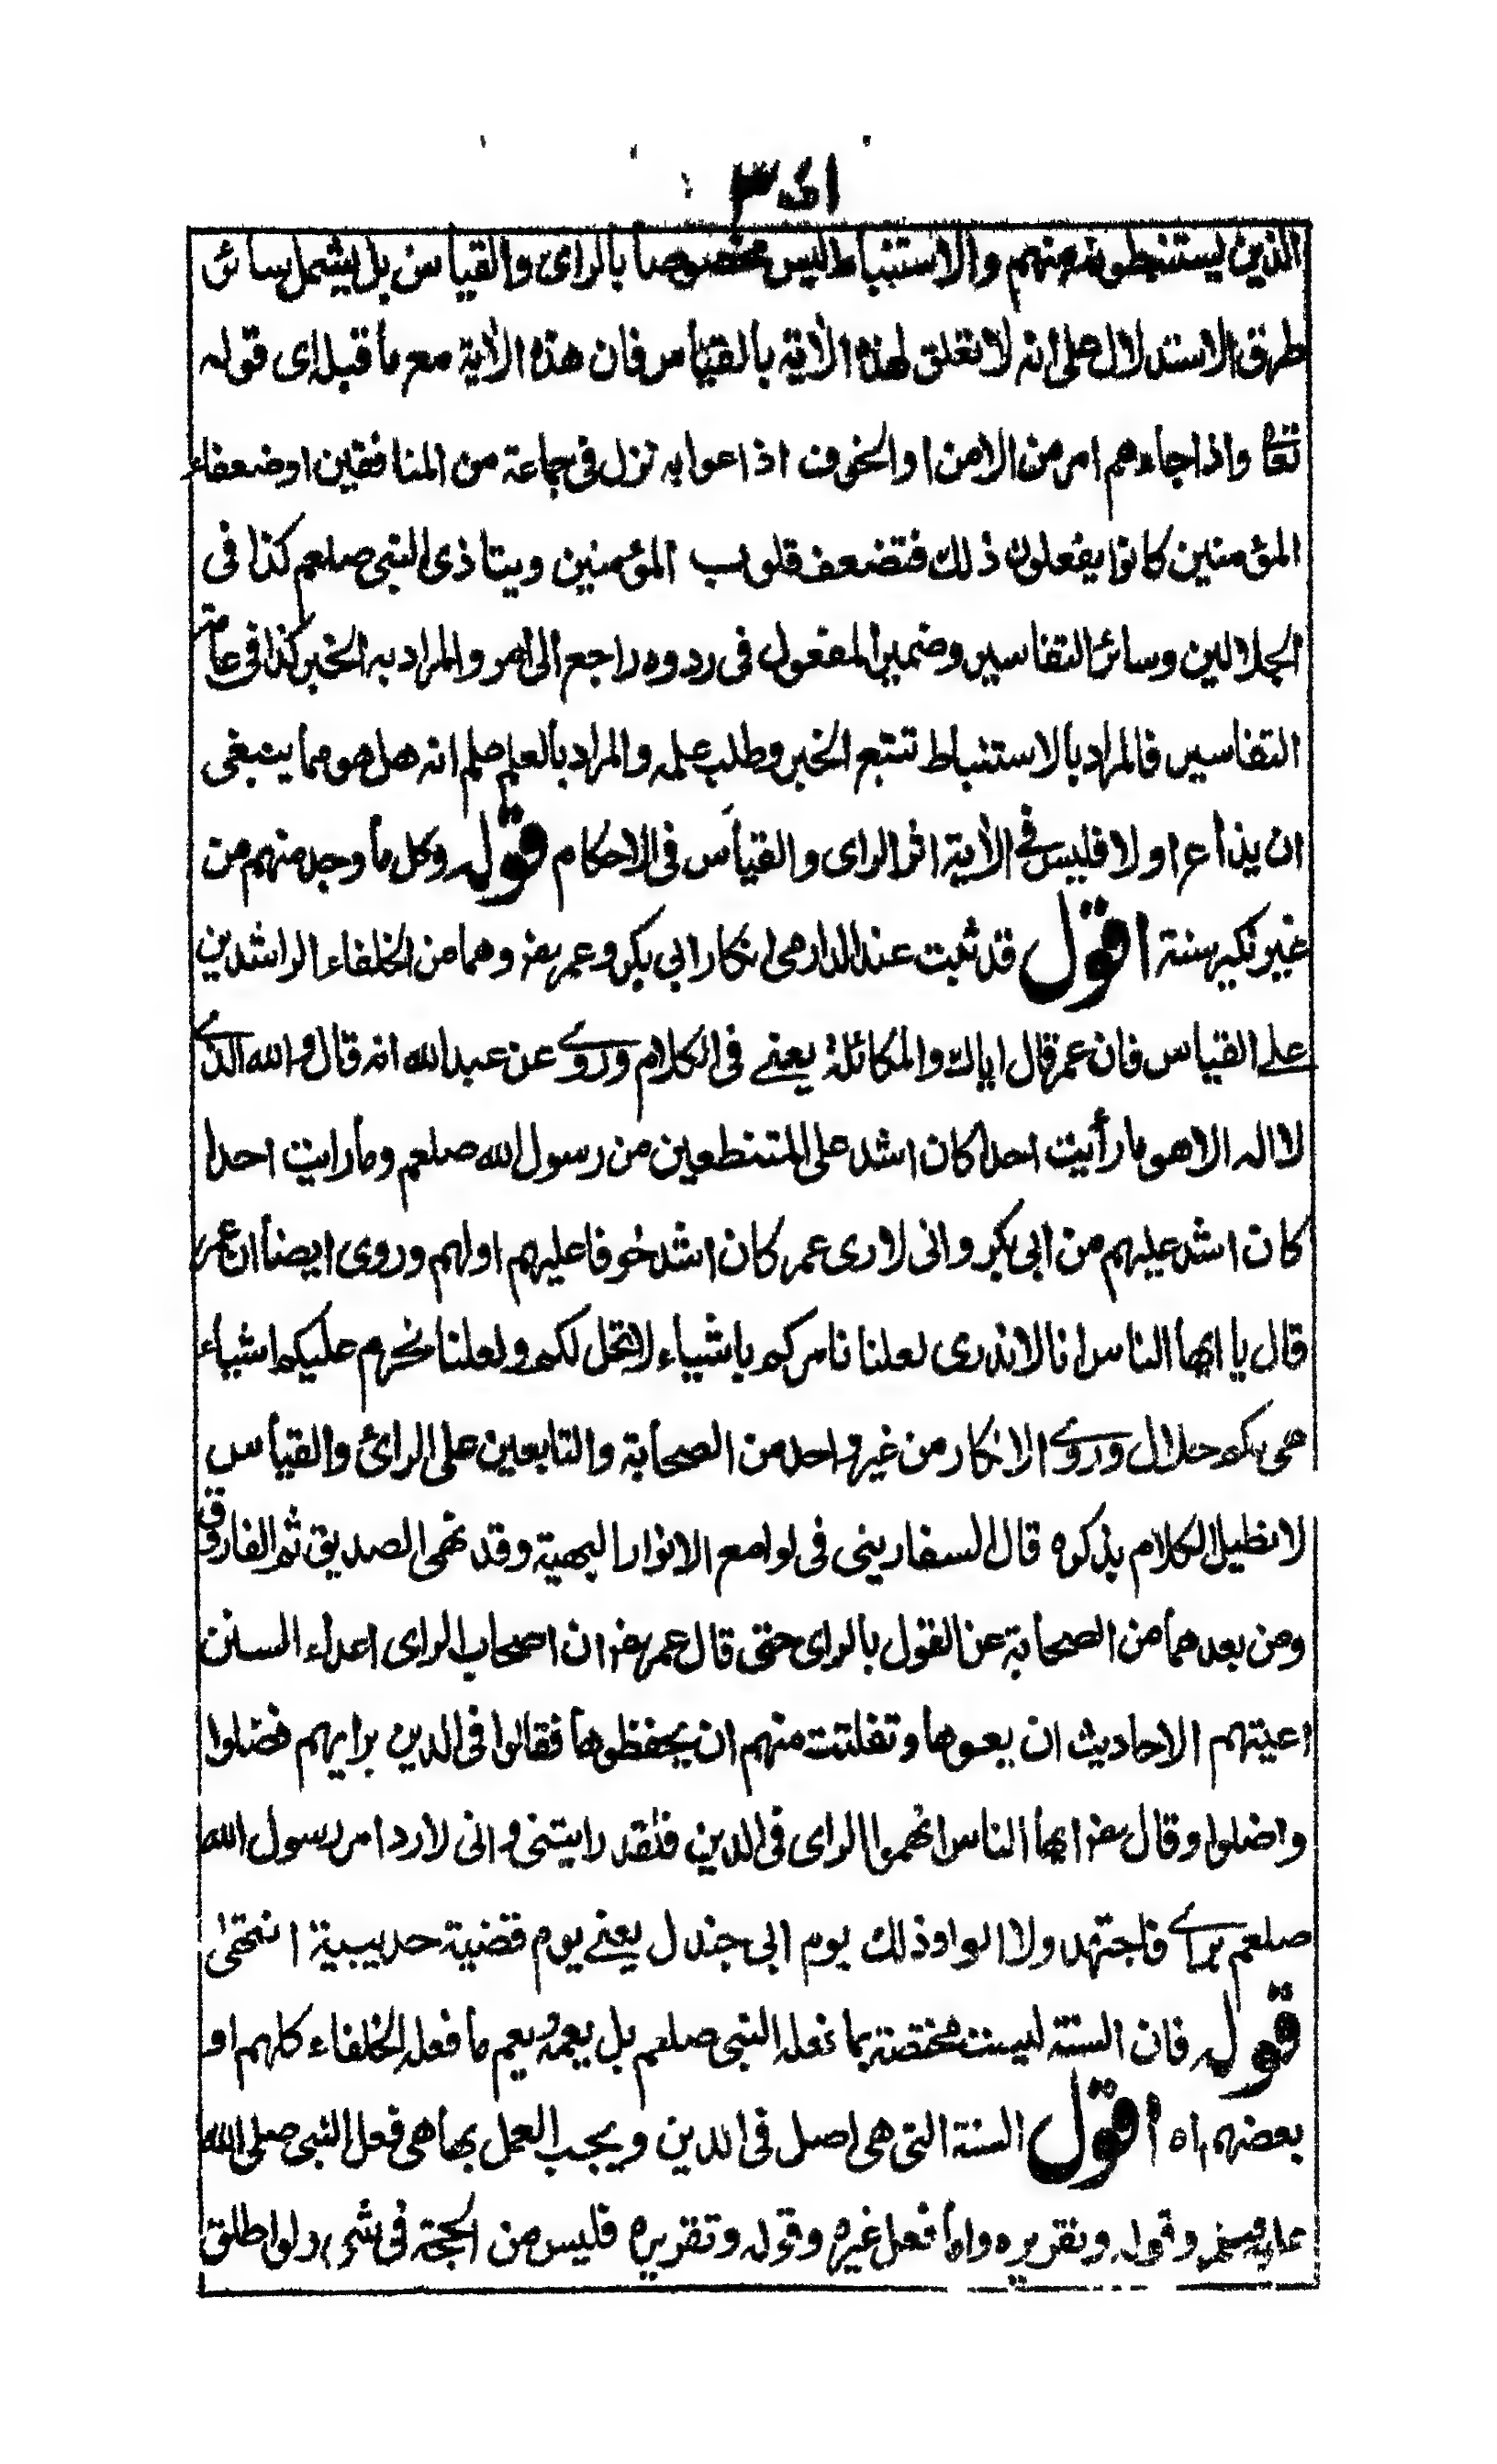 الذين يستنبطونه منهم والاستنباط ليس مخصوصا بالراى والقياس بل يشمل سائر
طرق الاستدلال على انه لا تعلق لهذه الآية بالقياس فان هذه الآية مع ما قبله اى قوله
تعا واذا جاءهم امر من الامن او الخوف اذاعوا به نزل فى جماعة من المنافقين او ضعفاء
المؤمنين كانوا يفعلون ذلك فتضعف قلوب المؤمنين ويتاذى النبى صلعم كذا فى
الجلالين وسائر التفاسير وضمير المفعول فى ردوه راجع الى الامر والمراد به الخبر كذا فى عامة
التفاسير فالمراد بالاستنباط تتبع الخبر وطلب علمه والمراد بالعلم علم انه هل هو مما ينبغى
ان يذاع اولا فليس فى الآية اثر الراى والقياس فى الاحكام قوله وكل ما وجد منهم من
غير نكير سنة اقول قد ثبت عند الدارمى انكار ابى بكر وعمر رض وهما من الخلفاء الراشدين
على القياس فان عمر قال اياك والمكائلة يعنے فى الكلام وروى عن عبد الله انه قال والله الذى
لا اله الا هو ما رأيت احدا كان اشد على المتنطعين من رسول الله صلعم وما رايت احدا
كان اشد عليهم من ابى بكر وانى لارى عمر كان اشد خوفا عليهم اولهم وروى ايضا ان عمر
قال يا ايها الناس انا لا ندرى لعلنا نامركم باشياء لا تحل لكم ولعلنا نحرم عليكم اشياء
هى لكم حلال وروى الانكار من غير واحد من الصحابة والتابعين على الرائ والقياس
لا نطيل الكلام بذكره قال السفارينى فى لوامع الانوار البهية وقد نهى الصديق ثم الفاروق
ومن بعدهما من الصحابة عن القول بالراى حتى قال عمر رض ان اصحاب الراى اعداء السنن
اعيتهم الاحاديث ان يعوها وتفلتت منهم ان يحفظوها فقالوا فى الدين برايهم فضلوا
واضلوا وقال رض ايها الناس اتهموا الراى فى الدين فلقد رايتنى وانى لارد امر رسول الله
صلعم براے فاجتهد ولا الوا وذلك يوم ابى جندل يعنے يوم قضية حديبية انتهى
قوله فان السنة ليست مختصة بما فعله النبى صلعم بل يعمه ويعم ما فعله الخلفاء كلهم او
بعضهم اه اقول السنة التى هى اصل فى الدين ويجب العمل بها هى فعل النبى صلى الله
عليه وسلم وقوله وتقريره واما فعل غيره وقوله وتقريره فليس من الحجة فى شىء ولو اطلق